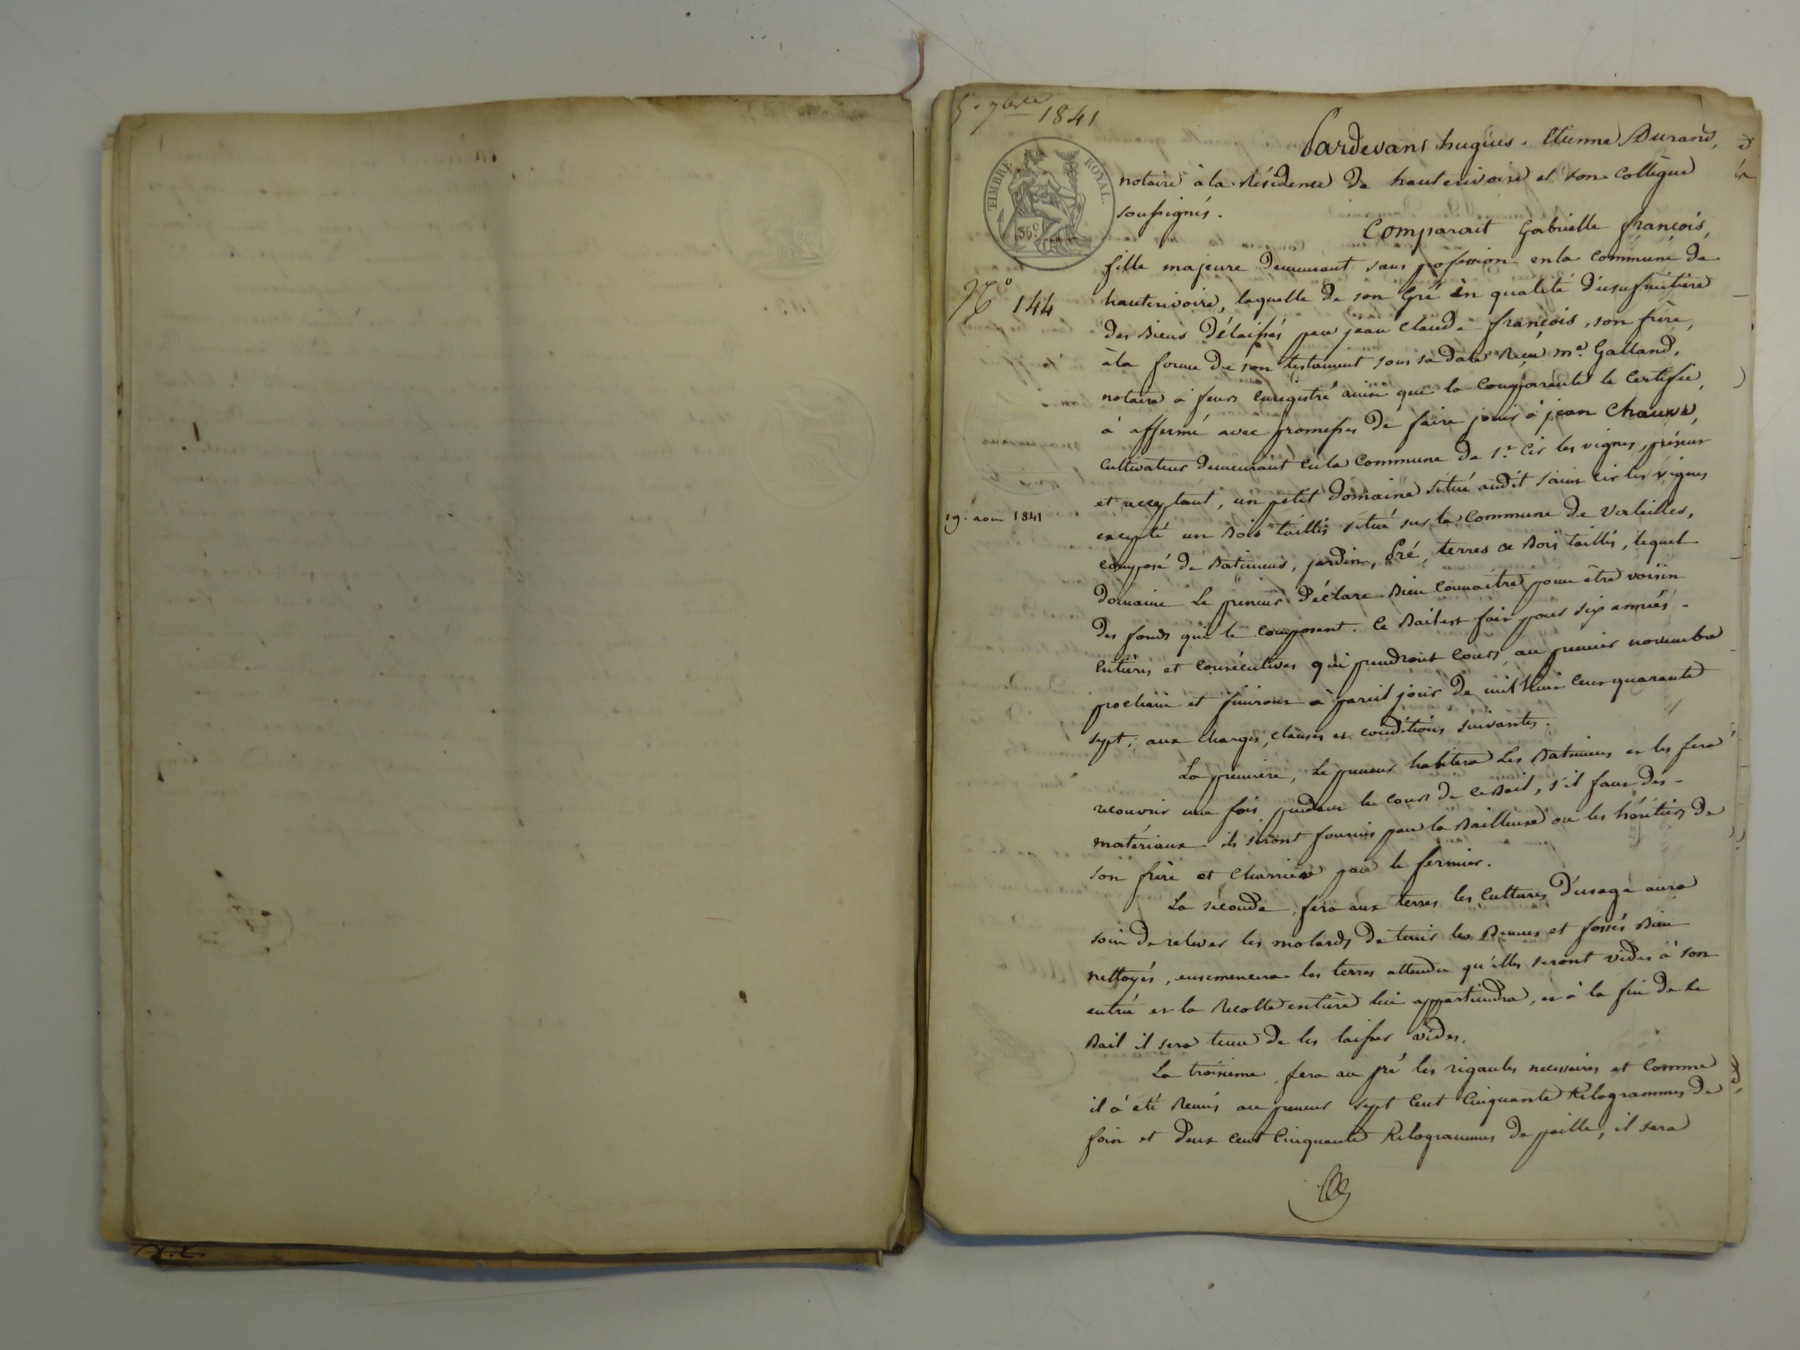 5. 7bre 1841
TIMBRE ROYAL.
35c
No 144
19. aout 1841
Pardevant hugues. Etienne Durand,
notaire à la Résidence De hauterivoire et son Collègue
soussignés.
Comparait Gabrielle françois,
fille majeure Demeurant sans profession en la Commune de
hauterivoire, laquelle de son Gré en qualité D'usufruitière
Des Biens Délaissés par jean Claude françois, son frère,
à la forme De son testament sous sa date Reçu me. Galland,
notaire à feurs enregistré ainsi que la Comparante le Certifie,
à affermé avec promesses De faire jouir à jean Chauve,
Cultivateur Demeurant en la Commune De St. Cir les vignes, présent
et acceptant, un petit Domaine situé audit saint cir les vignes
excepté un Bois taillis situé sur la Commune De Valeilles,
composé De Batimens, jardin, Pré, terres et Bois taillis, lequel
Domaine Le preneur Déclare Bien Connaitre pour être voisin
Des fonds qui le composent. Ce Bail est fait pour six années -
entières et consécutives qui prendront Cours au premier novembre
prochain et finiront à pareil jour De mil huit Cent quarante
sept, aux Charges, clauses et conditions suivantes.
La premiere, Le preneur habitera Les Batimens et les fera
recouvrir une fois pendant le cours De ce Bail, s'il faut des -
matériaux ils seront fournis par la Bailleuse ou les héritiers De
son frère et charriés par le fermier.
La seconde, fera aux terres les Cultures D'usage aura
soin De relever les molards De tenir les Bennes et fossés Bien
nettoyés, ensemencera les terres attendu qu'elles seront vides à son
entrée et la Recolte entière lui appartiendra, et à la fin De ce
Bail il sera tenu De les laisser vides.
La troisieme, fera au pré les rigaules necessaires et Comme
il à été Remis au preneur sept Cent Cinquante Kilogrammes De
foin et Deux Cent Cinquante Kilogrammes De paille, il sera